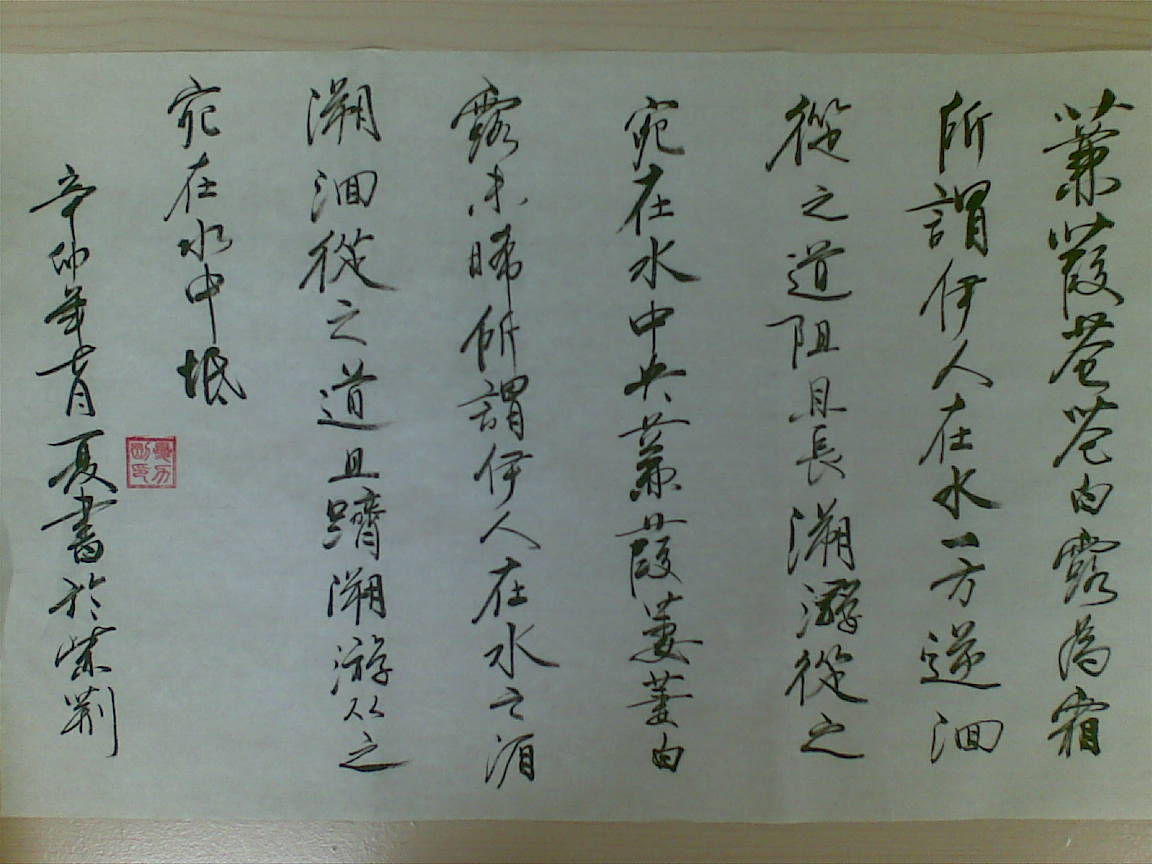 蒹葭苍苍白露為霜
所謂伊人在水一方遡洄
從之道阻且長溯游從之
宛在水中央蒹葭萋萋白
露未晞所謂伊人在水之湄
溯洄從之道且躋溯游从之
宛在水中坻
辛卯年七月夏書於紫荆